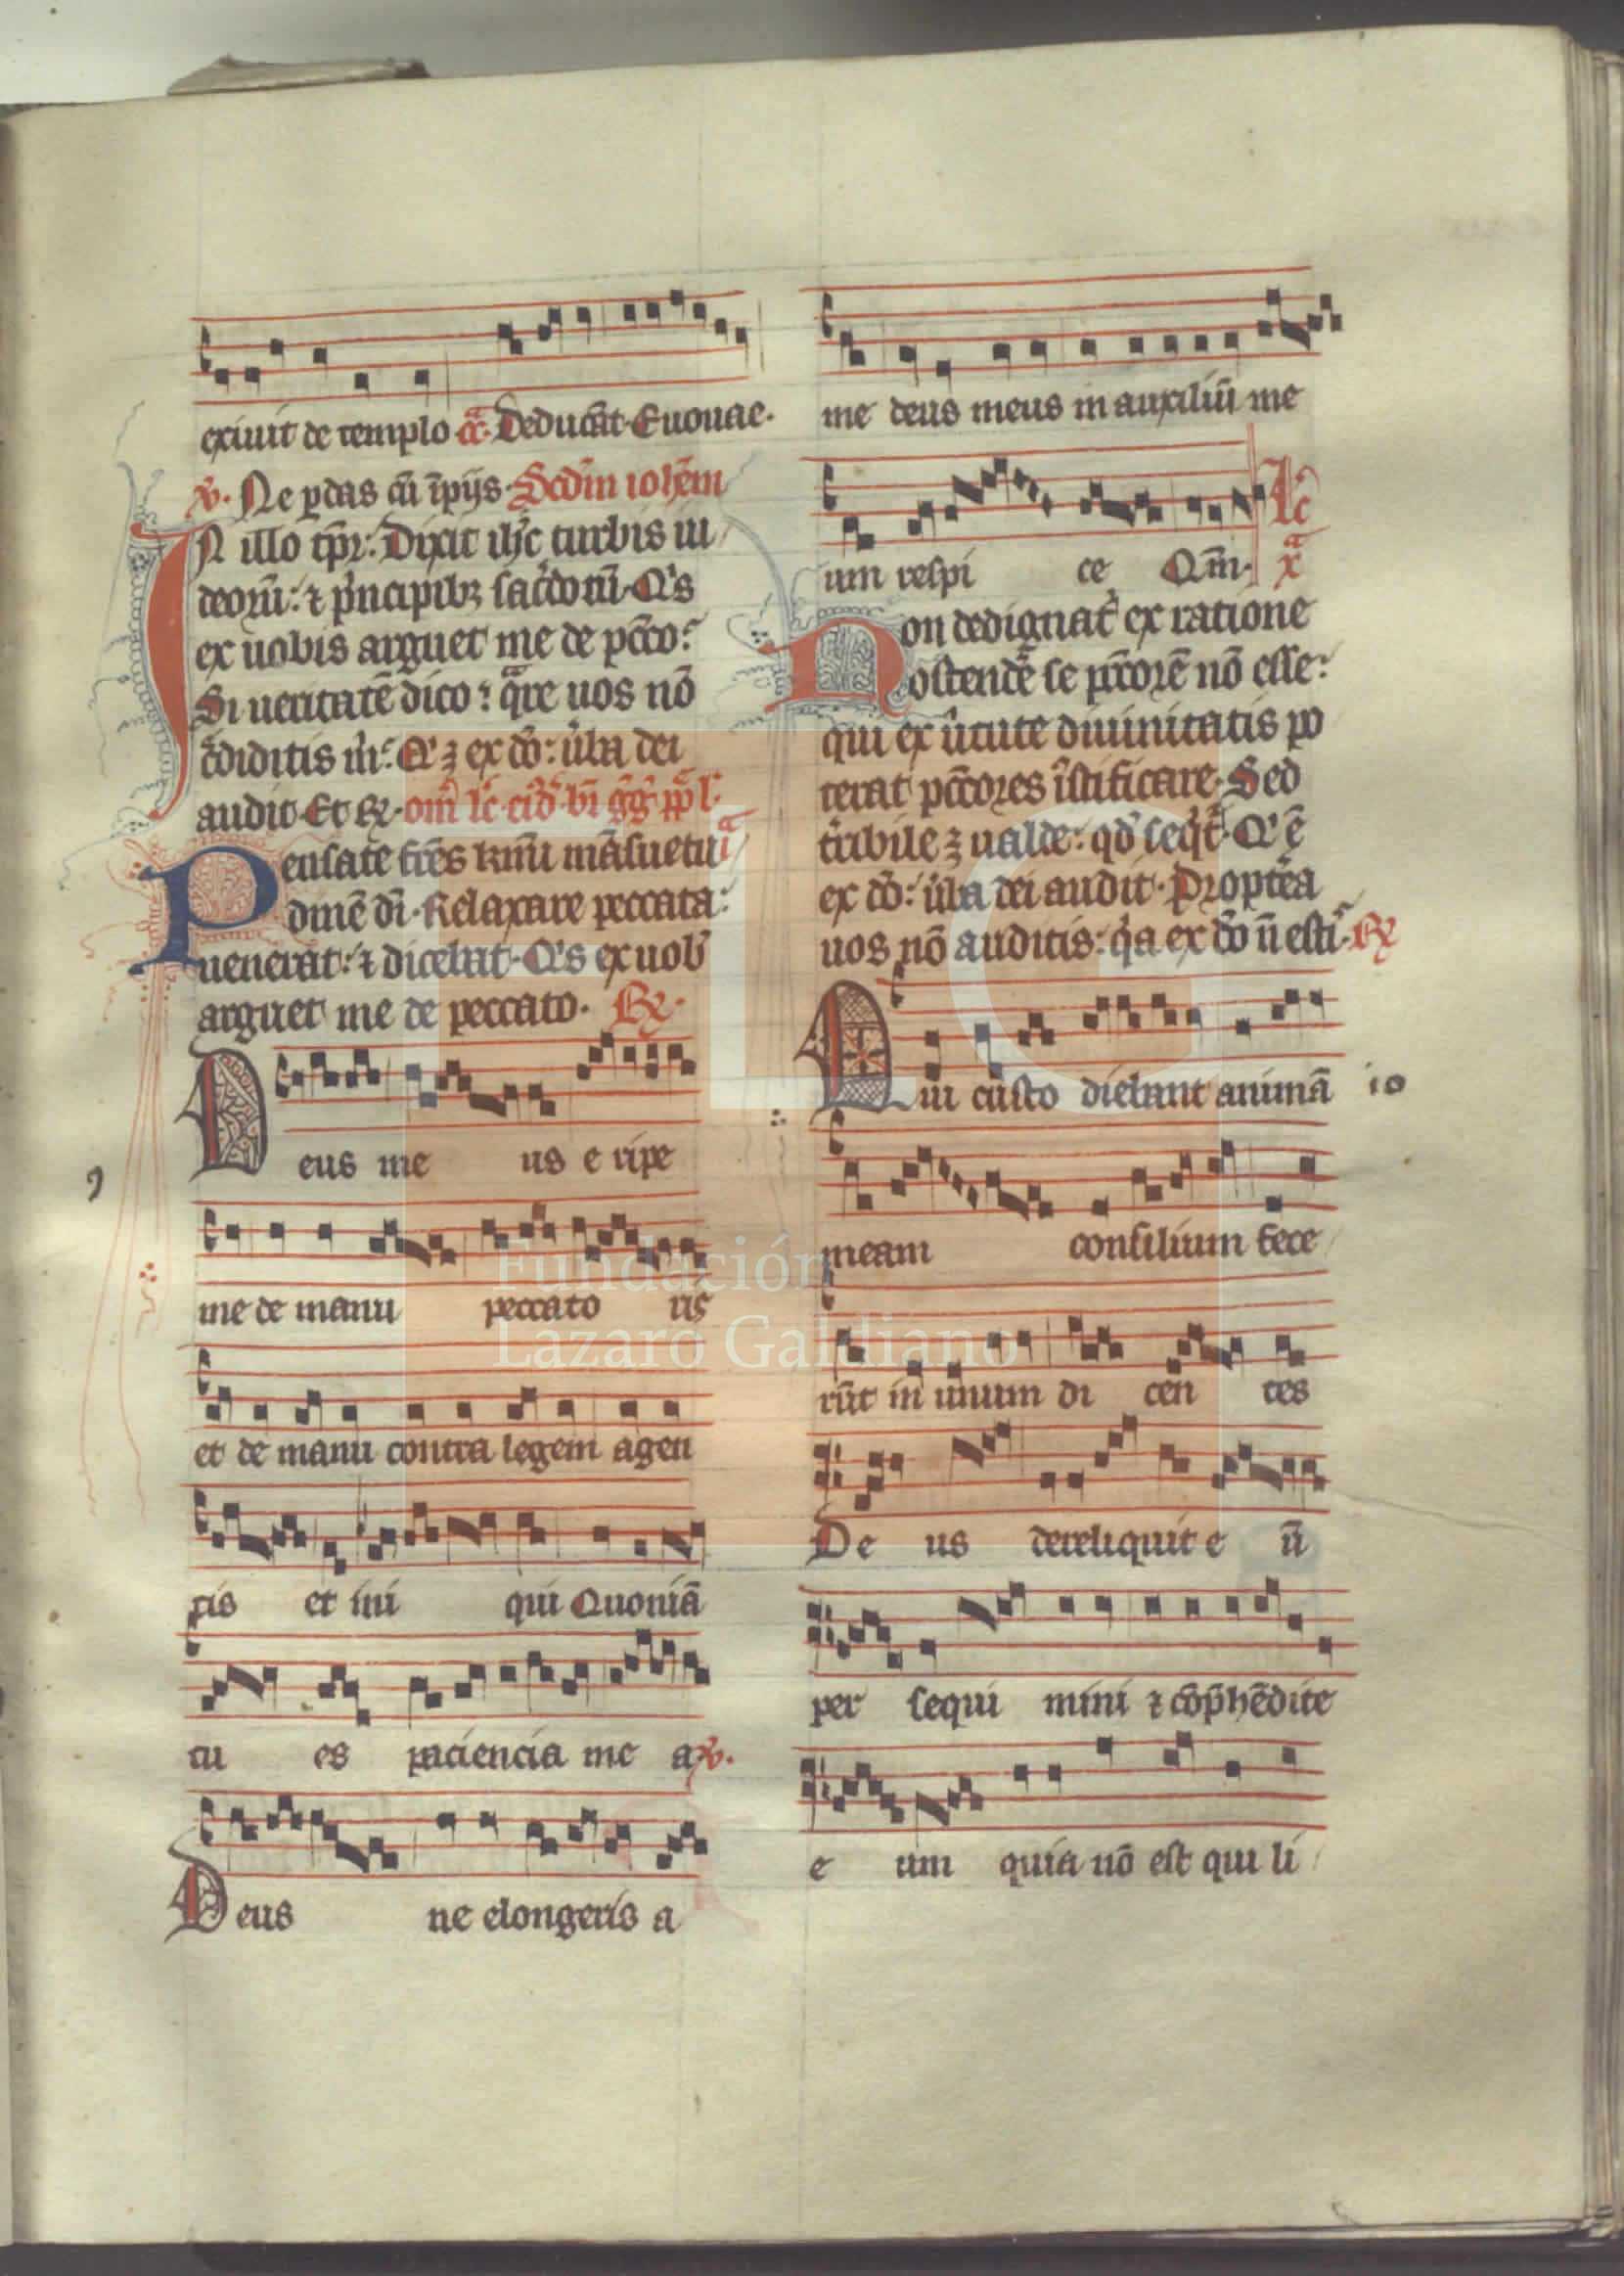 exiuit de templo a͞c. Deducāt. Euouae.
℣. Ne ꝑdas cū īpijs. Scdm ioħem
IN illo tp̄r. Dixit ih̄c turbis iu
deoꝝ: ⁊ pͥncipibꝫ sac̓dotū. Qͥs
ex uobis arguet me de pcc̄o?
Si ueritatē dico: qͣre uos nō
c̓ditis m̄. Qͥ ꝫ ex do: ūba dei
audit. Et ꝶ. om̄ lc̄
Pensate fr̄es kmi māsuetu
dinē di. Relaxare peccata:
uenerat: ⁊ dicebat. Qͥs ex uob̓
arguet me de peccato. ꝶ.
Deus me us e ripe
9
me de manu peccato ris
et de manu contra legem agen
tis et ini qui Quoniā
tu es paciencia me a ℣.
Deus ne elongeris a
me deus meus in auxiliū me
um respi ce Qm̄. lc̄ x̄
Non dedignat̓ ex ratione
ostendē se pcc̄orē nō esse:
qui ex ūtute diuinitatis po
terat pcc̄ores iustificare. Sed
t̓ribile ꝫ ualde: qd̓ seqͥt̓. Qͥ ē
ex do: ūba dei audit. Proptēa
uos nō auditis: qͥa ex dō n̄ estͥ. ꝶ
Qui custo diebant animā 10
meam consilium fece
rūt in unum di cen tes
De us dereliquit e ū
per sequi mini ⁊ cōp̄hēdite
e um quia nō est qui li
Fundación
Lázaro Galdiano